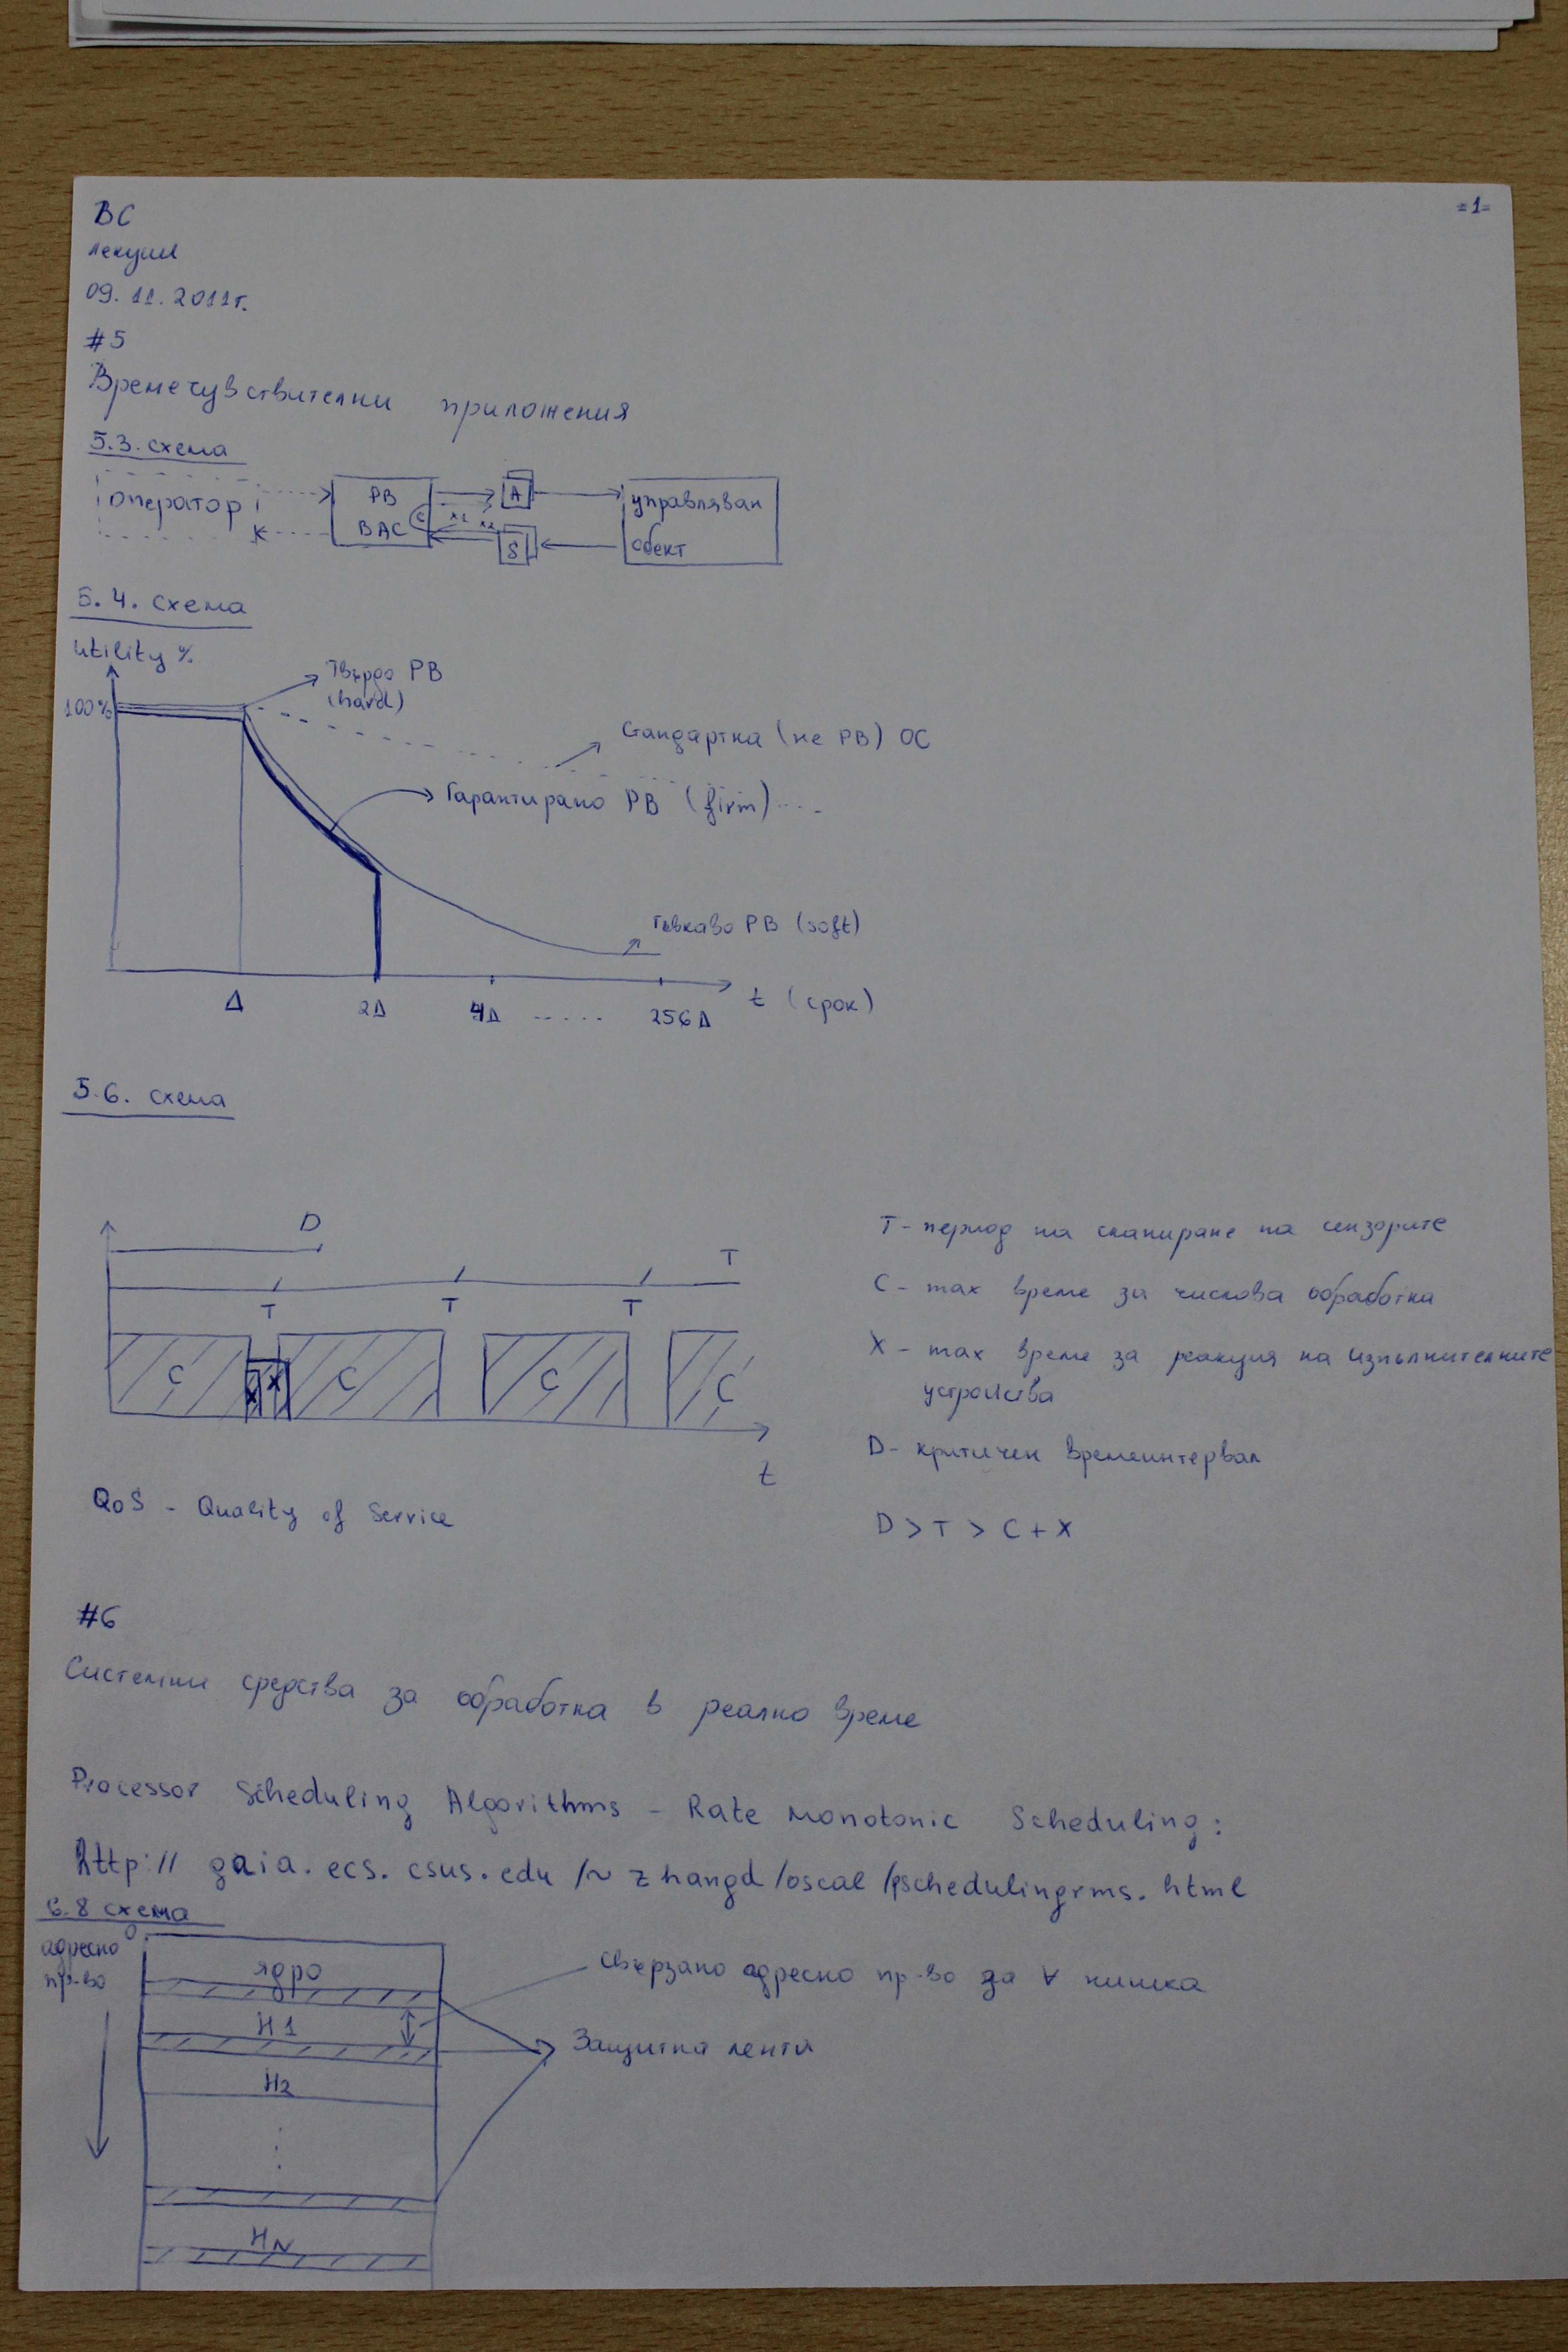 =1=
ВС
лекции
09.11.2011г.
#5
Времечувствителни приложения
5.3. схема
оператор
РВ
ВАС
C
x1 x2
A
S
управляван
обект
5.4. схема
utility %
100%
Твърдо РВ
(hard)
Стандартна (не РВ) ОС
Гарантирано РВ (firm)....
Гъвкаво РВ (soft)
Δ 2Δ 4Δ ..... 256Δ
t (срок)
5.6. схема
D
T
T T T
C X X C C C
t
T - период на сканиране на сензорите
C - max време за числова обработка
X - max време за реакция на изпълнителните
устройства
D - критичен времеинтервал
D > T > C + X
QoS - Quality of Service
#6
Системни средства за обработка в реално време
Processor Scheduling Algorithms - Rate Monotonic Scheduling:
http:// gaia.ecs.csus.edu/~zhangd/oscal/pschedulingrms.html
6.8 схема
адресно
пр-во
0
ядро
H1
H2
HN
свързано адресно пр-во за ∀ нишка
Защитна лента